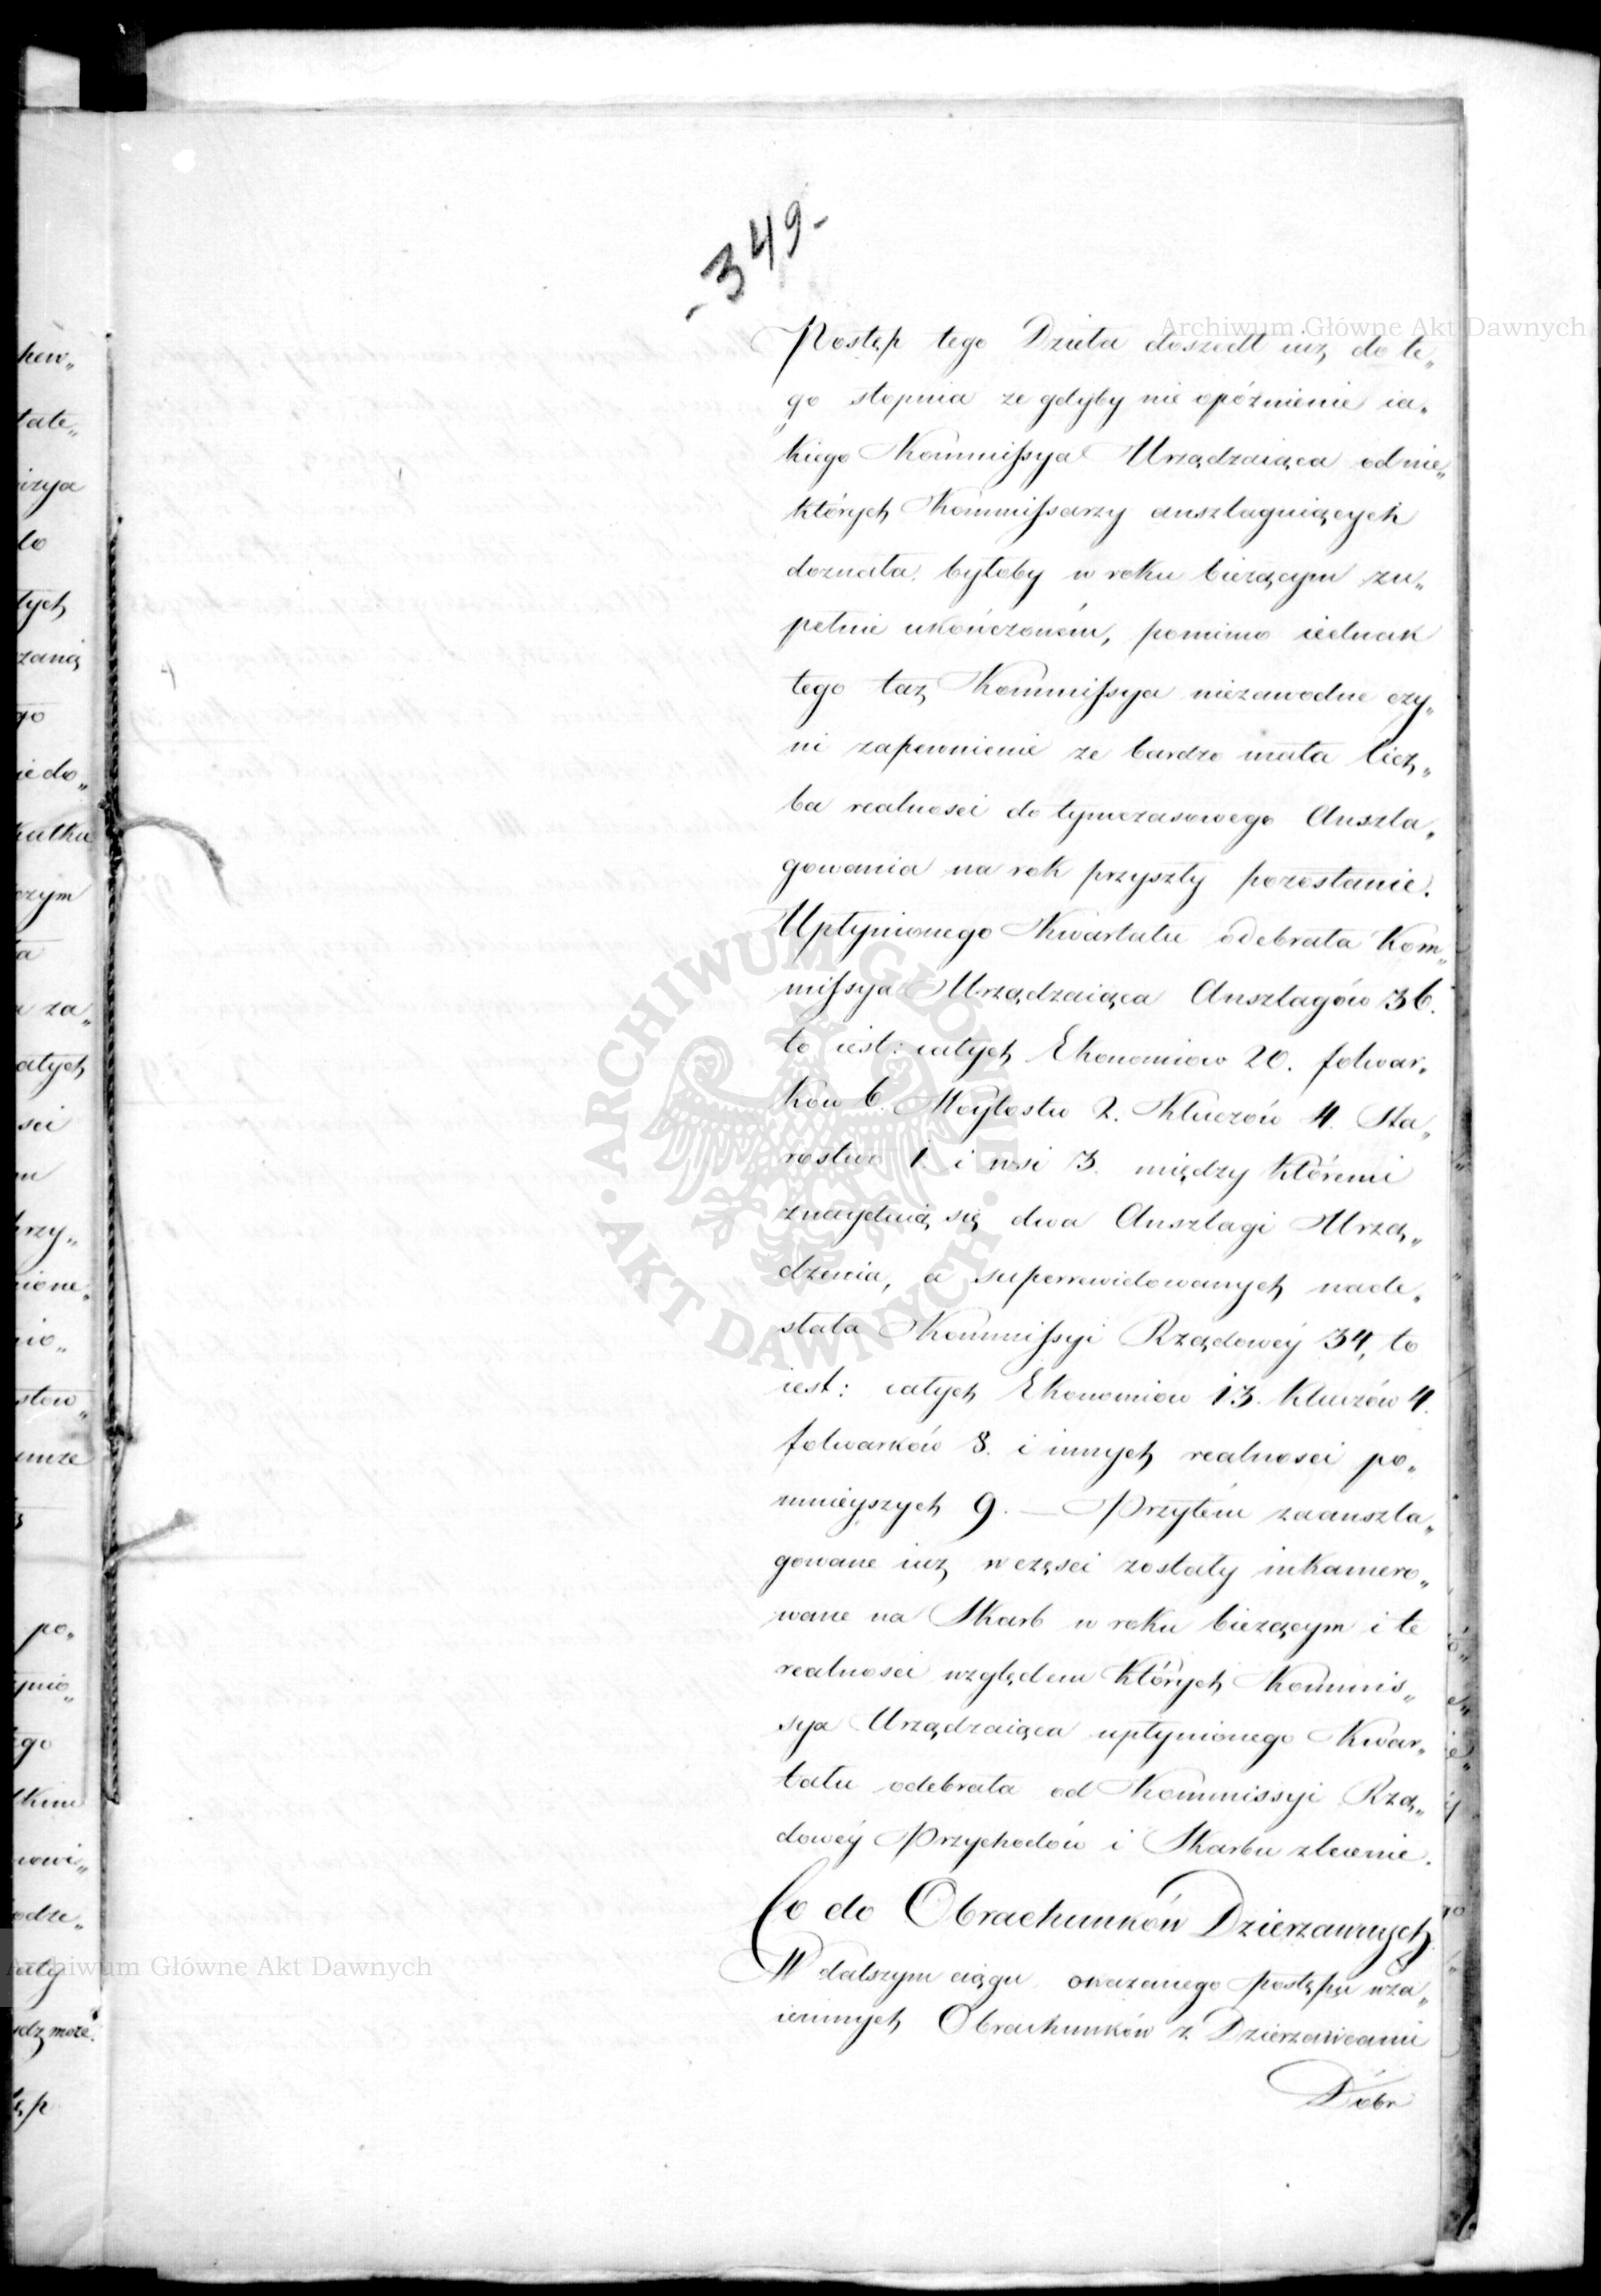 -349-
Postęp tego Dzieła doszedł iuż do te„
go stopnia ze gdyby nie opóźnienie ia„
kiego Kommissya Urządzaiąca od nie„
których Kommissarzy anszlaguiących
doznała, byłoby w roku bieżącym zu„
pełnie ukończoném, pomimo iednak
tego taż Kommissya niezawodne czy„
ni zapewnienie ze bardzo mała licz„
ba realności do tymczasowego Anszla„
gowania na rok przyszły pozostanie.
Upłynionego Kwartału odebrała Kom„
missya Urządzaiąca Anszlagów 36.
to iest: całych Ekonomiow 20. folwar„
ków 6. Woytostw 2. Kluczów 4. Sta„
rostwo 1. i wsi 3. między któremi
znayduią się dwa Anszlagi Urzą„
dzenia, a superrewidowanych nade„
słała Kommissyi Rządowéy 34, to
iest: całych Ekonomiow 13. Kluczów 4.
folwarków 8. i innych realności po„
mnieyszych 9. — Przytém zaanszla„
gowane iuż w części zostały inkamero„
wane na Skarb w roku bieżącym i te
realności względem których Kommis„
sya Urządzaiąca upłynionego Kwar„
tału odebrała od Kommissyi Rzą„
dowéy Przychodów i Skarbu zlecenie.
Co do Obrachunków Dzierzawnych.
W dalszym ciągu owazanego postępu wza„
iemnych Obrachunków z Dzierzawcami
Dóbr
Archiwum Główne Akt Dawnych
Archiwum Główne Akt Dawnych
ARCHIWUM GŁÓWNE · AKT DAWNYCH ·